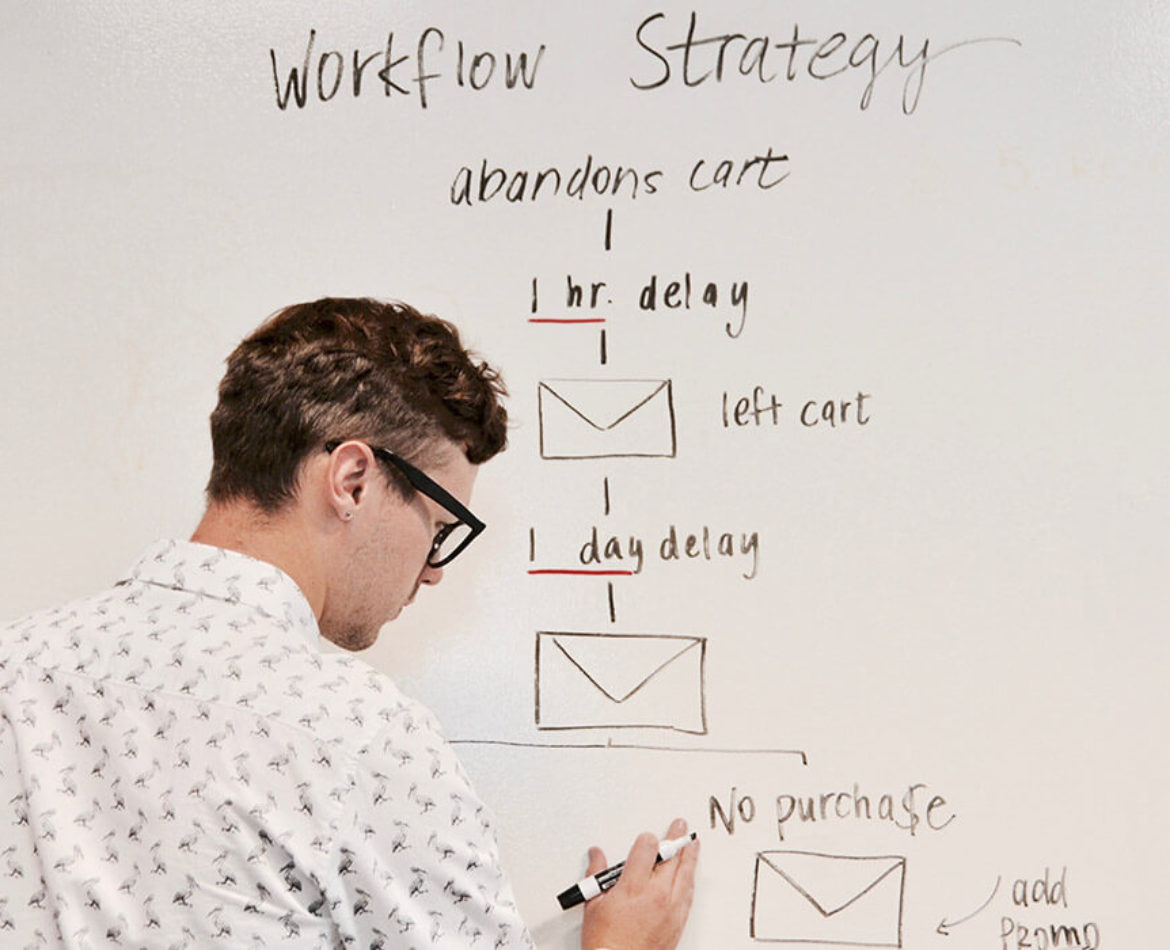 Workflow Strategy
abandons cart
1 hr. delay
left cart
1 day delay
No purchase
add
promo